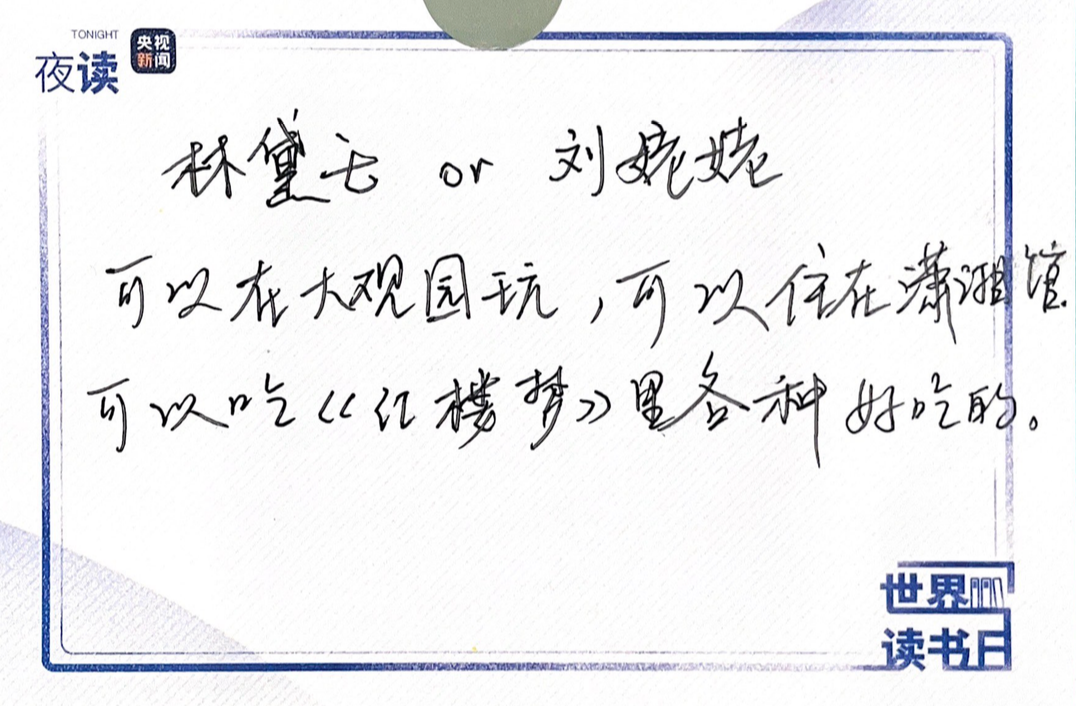 TONIGHT
夜读
央视
新闻
林黛玉 or 刘姥姥
可以在大观园玩，可以住在潇湘馆
可以吃《红楼梦》里各种好吃的。
世界
读书日